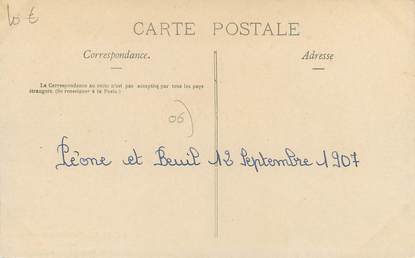 10 €
CARTE POSTALE
Correspondance.
Adresse
La Correspondance au recto n'est pas acceptée par tous les pays
étrangers. (Se renseigner à la Poste.)
06)
Péone et Beuil 12 Septembre 1907